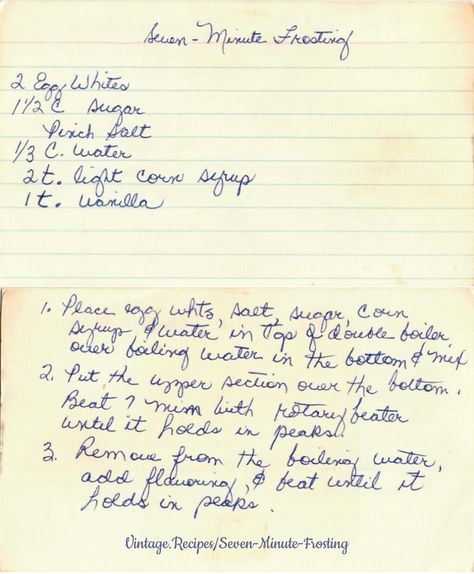 Seven-Minute Frosting
2 Egg Whites
1 1/2 C sugar
Pinch Salt
1/3 C. water
2 t. light corn syrup
1 t. vanilla
1. Place egg whts, salt, sugar, corn
syrup & water in top of double boiler
over boiling water in the bottom & mix
2. Put the upper section over the bottom.
Beat 7 mins with rotary beater
until it holds in peaks.
3. Remove from the boiling water,
add flavoring, & beat until it
holds in peaks.
Vintage.Recipes/Seven-Minute-Frosting